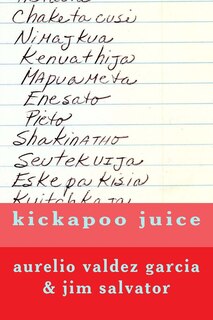 Chaketa cusi
Nimajkua
Kenuathija
Mapuameta
Enesato
Pieto
Shakinatho
Seutekuija
Eskepakisia
kickapoo juice
aurelio valdez garcia
& jim salvator